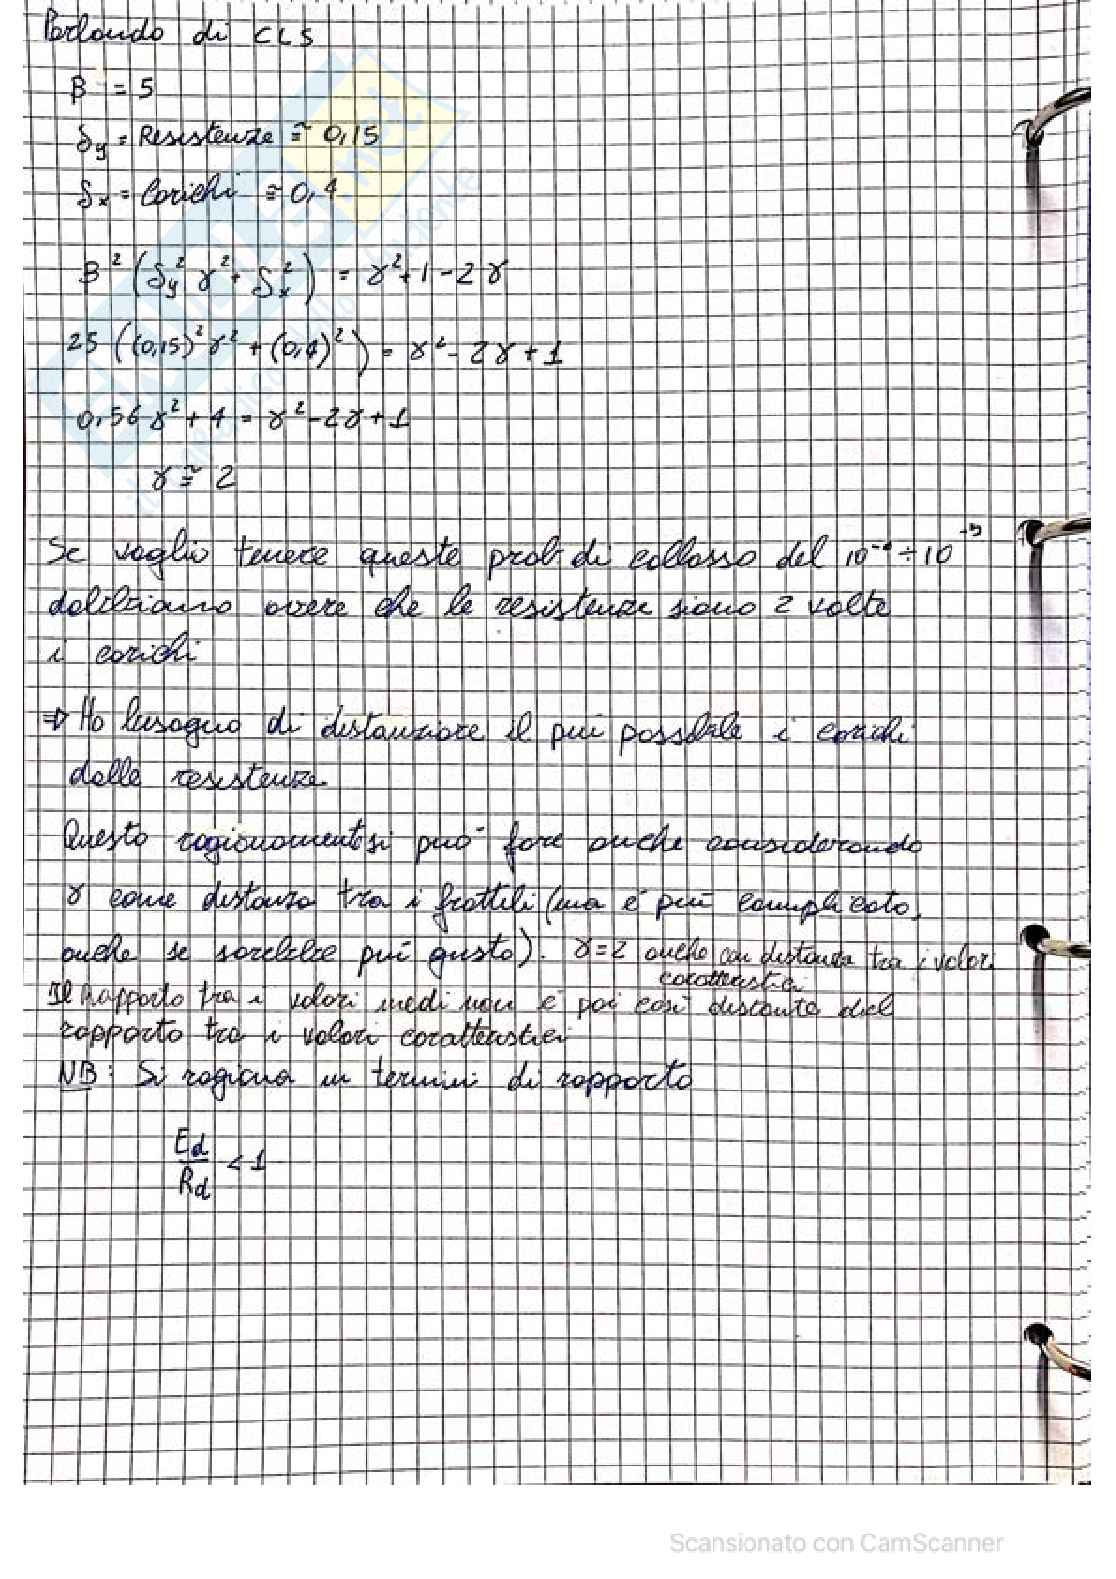 Parlando di CLS
β = 5
δy = Resistenze ≅ 0,15
δx = Carichi ≅ 0,4
β² (δy² γ² + δx²) = γ² + 1 - 2γ
25 ((0,15)² γ² + (0,4)²) = γ² - 2γ + 1
0,56 γ² + 4 = γ² - 2γ + 1
γ ≅ 2
Se voglio tenere queste prob. di collasso del 10⁻⁶ ÷ 10⁻⁵
dobbiamo avere che le resistenze siano 2 volte
i carichi
⇒ Ho bisogno di distanziare il più possibile i carichi
dalle resistenze
Questo ragionamento si può fare anche considerando
γ come distanza tra i frattili (ma è più complicato,
anche se sarebbe più giusto). γ=2 anche con distanza tra i valori
caratteristici
Il Rapporto tra i valori medi non è poi così distante dal
rapporto tra i valori caratteristici
NB: Si ragiona in termini di rapporto
Ed
/Rd < 1
Scansionato con CamScanner